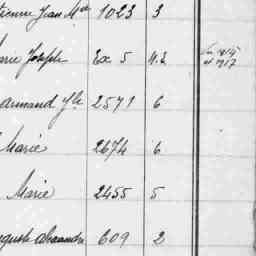 tienne Jean Mie 1023 3
arie Joseph Ex 5 4.2
armand Jh 2571 6
Marie 2674 6
Marie 2455 5
uguste alexandre 609 2